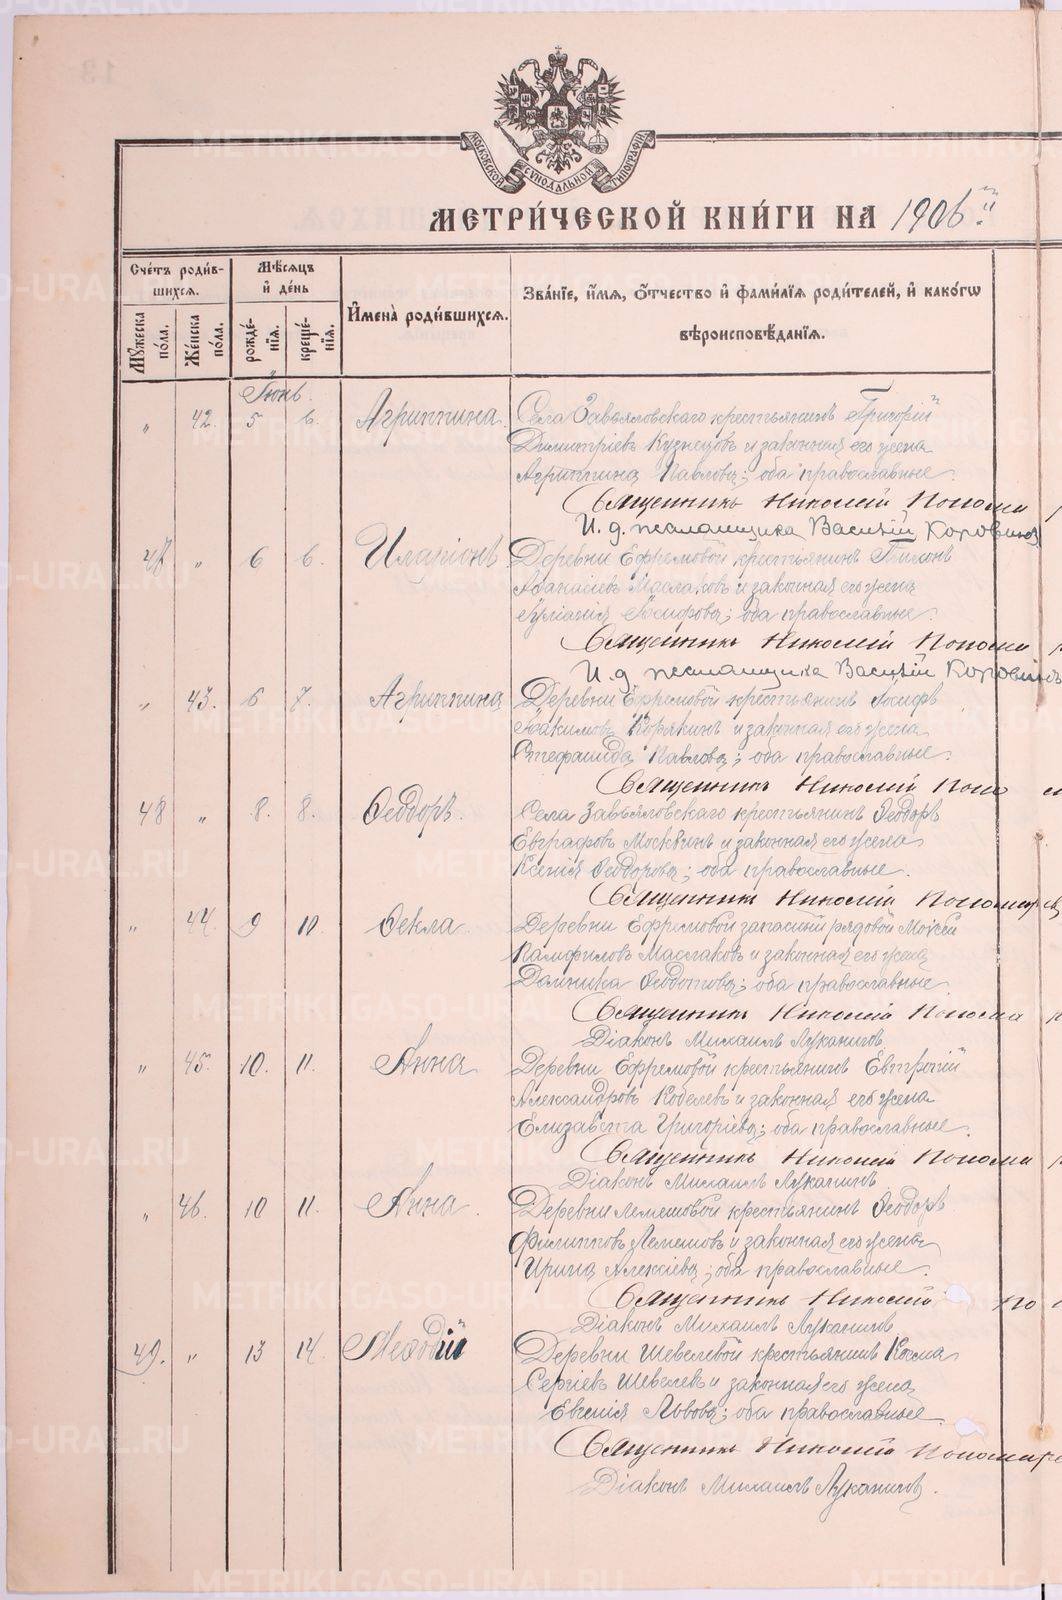 МОСКОВСКОЙ СѴНОДАЛЬНОЙ ТИПОГРАФІИ
МЕТРИ́ЧЕСКОЙ КНИ́ГИ НА 1906й
Сче́тъ роди́в-
шихсѧ.
Мꙋ́жеска
по́ла.
Же́нска
по́ла.
Мѣ́сѧцъ
и҆ де́нь
рожде́-
нїѧ.
креще́-
нїѧ.
И҆мена̀ роди́вшихсѧ.
Зва́нїе, и҆́мѧ, ѻ҆́тчество и҆ фами́лїѧ роди́телей, и҆ како́гѡ
вѣроисповѣ́данїѧ.
Іюнь.
„ 42. 5 6. Агриппина. Села Завьяловскаго крестьянинъ Григорій
Димитріевъ Кузнецовъ и законная его жена
Агриппина Павлова; оба православные.
Священникъ Николай Попома
И. д. псаломщика Василій Коровинъ
47 „ 6 6. Иларіонъ Деревни Ефремовой крестьянинъ
Афанасіевъ Маслаковъ и законная его жена
Іуліанія Іосифова; оба православные.
Священникъ Николай Попома
И. д. псаломщика Василій Коровинъ
„ 43. 6 7. Агриппина Деревни Ефремовой крестьянинъ Іосифъ
Іоакимовъ Корякинъ и законная его жена
Стефанида Павлова; оба православные.
Священникъ Николай Поно
48 „ 8. 8. Ѳеодоръ. Села Завьяловскаго крестьянинъ Ѳеодоръ
Евграфовъ Москвинъ и законная его жена
Ксенія Ѳеодорова; оба православные.
Священникъ Николай Пономарев
„ 44. 9 10. Ѳекла. Деревни Ефремовой запасный рядовой Моѵсей
Памфиловъ Маслаковъ и законная его жена
Домника Ѳеодотова; оба православные.
Священникъ Николай Понома
Діаконъ Михаилъ Луканинъ.
„ 45. 10. 11. Анна Деревни Ефремовой крестьянинъ Евтропій
Александровъ Кобелевъ и законная его жена
Елизавета Григоріева; оба православные.
Священникъ Николай Понома
Діаконъ Михаилъ Луканинъ.
„ 46. 10 11. Анна. Деревни Лемешовой крестьянинъ Ѳеодоръ
Филипповъ Лемешовъ и законная его жена
Ирина Алексіева; оба православные.
Священникъ Николай По
Діаконъ Михаилъ Луканинъ
49. „ 13 14. Меѳодій Деревни Шевелевой крестьянинъ Косма
Сергіевъ Шевелевъ и законная его жена
Евгенія Львова; оба православные.
Священникъ Николай Пономаре
Діаконъ Михаилъ Луканинъ.
METRIKI.GASO-URAL.RU